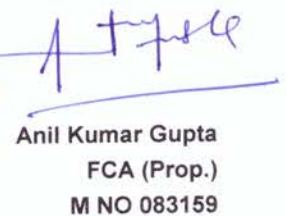 Anil Kumar Gupta
FCA (Prop.)
M NO 083159